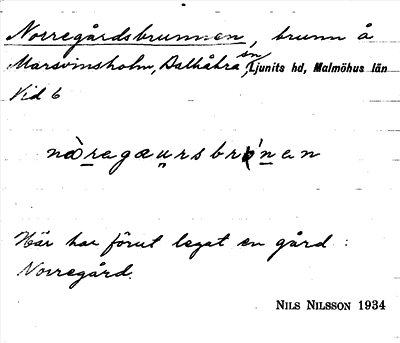 Norregårdsbrunnen, brunn å
Marsvinsholm, Balkåkra sn, Ljunits hd, Malmöhus län
Vid 6
nòregæursbrònan
Här har förut legat en gård:
Norregård.
NILS NILSSON 1934